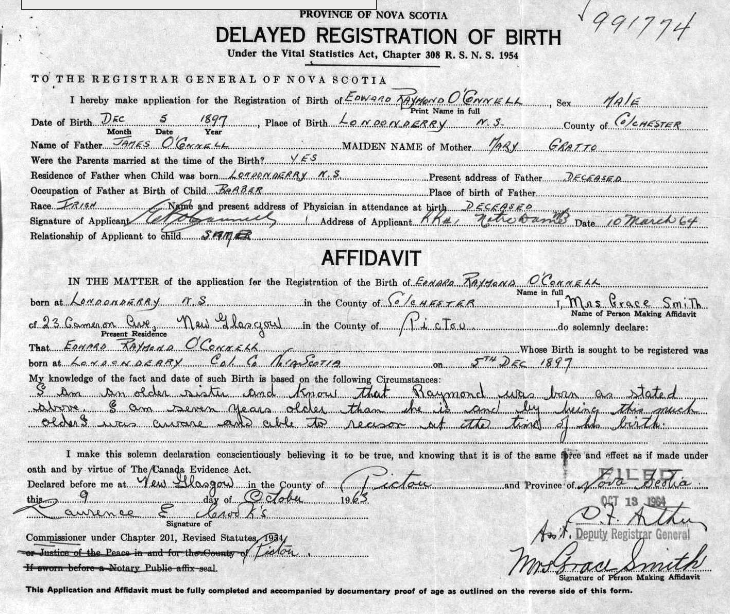 PROVINCE OF NOVA SCOTIA
991774
DELAYED REGISTRATION OF BIRTH
Under the Vital Statistics Act, Chapter 308 R. S. N. S. 1954
TO THE REGISTRAR GENERAL OF NOVA SCOTIA
I hereby make application for the Registration of Birth of EDWARD RAYMOND O'CONNELL, Sex MALE
Print Name in full
Date of Birth DEC 5 1897, Place of Birth LONDONDERRY N.S. County of COLCHESTER
Month Date Year
Name of Father JAMES O'CONNELL MAIDEN NAME of Mother MARY GRATTO
Were the Parents married at the time of the Birth? YES
Residence of Father when Child was born LONDONDERRY N.S. Present address of Father DECEASED
Occupation of Father at Birth of Child BARBER Place of birth of Father
Race IRISH Name and present address of Physician in attendance at birth DECEASED
Signature of Applicant Address of Applicant Notre Dame Date 10 March 64
Relationship of Applicant to child SAME
AFFIDAVIT
IN THE MATTER of the application for the Registration of the Birth of EDWARD RAYMOND O'CONNELL
Name in full
born at LONDONDERRY N.S. in the County of COLCHESTER I, Mrs Grace Smith
Name of Person Making Affidavit
of 23 Cameron Ave, New Glasgow in the County of Pictou do solemnly declare:
Present Residence
That EDWARD RAYMOND O'CONNELL Whose Birth is sought to be registered was
born at LONDONDERRY Col. Co. NOVA SCOTIA on 5TH DEC 1897
My knowledge of the fact and date of such Birth is based on the following Circumstances:
I am an older sister and know that Raymond was born as stated
above. I am seven years older than he is and by being this much
older I was aware and able to reason at the time of his birth.
I make this solemn declaration conscientiously believing it to be true, and knowing that it is of the same force and effect as if made under
oath and by virtue of The Canada Evidence Act.
Declared before me at New Glasgow in the County of Pictou and Province of Nova Scotia
FILED
this 9 day of October 1963
OCT 13 1964
Laurence E Crooks
Signature of
Asst. Deputy Registrar General
Commissioner under Chapter 201, Revised Statutes, 1934
or Justice of the Peace in and for the County of Pictou.
If sworn before a Notary Public affix seal.
Mrs Grace Smith
Signature of Person Making Affidavit
This Application and Affidavit must be fully completed and accompanied by documentary proof of age as outlined on the reverse side of this form.